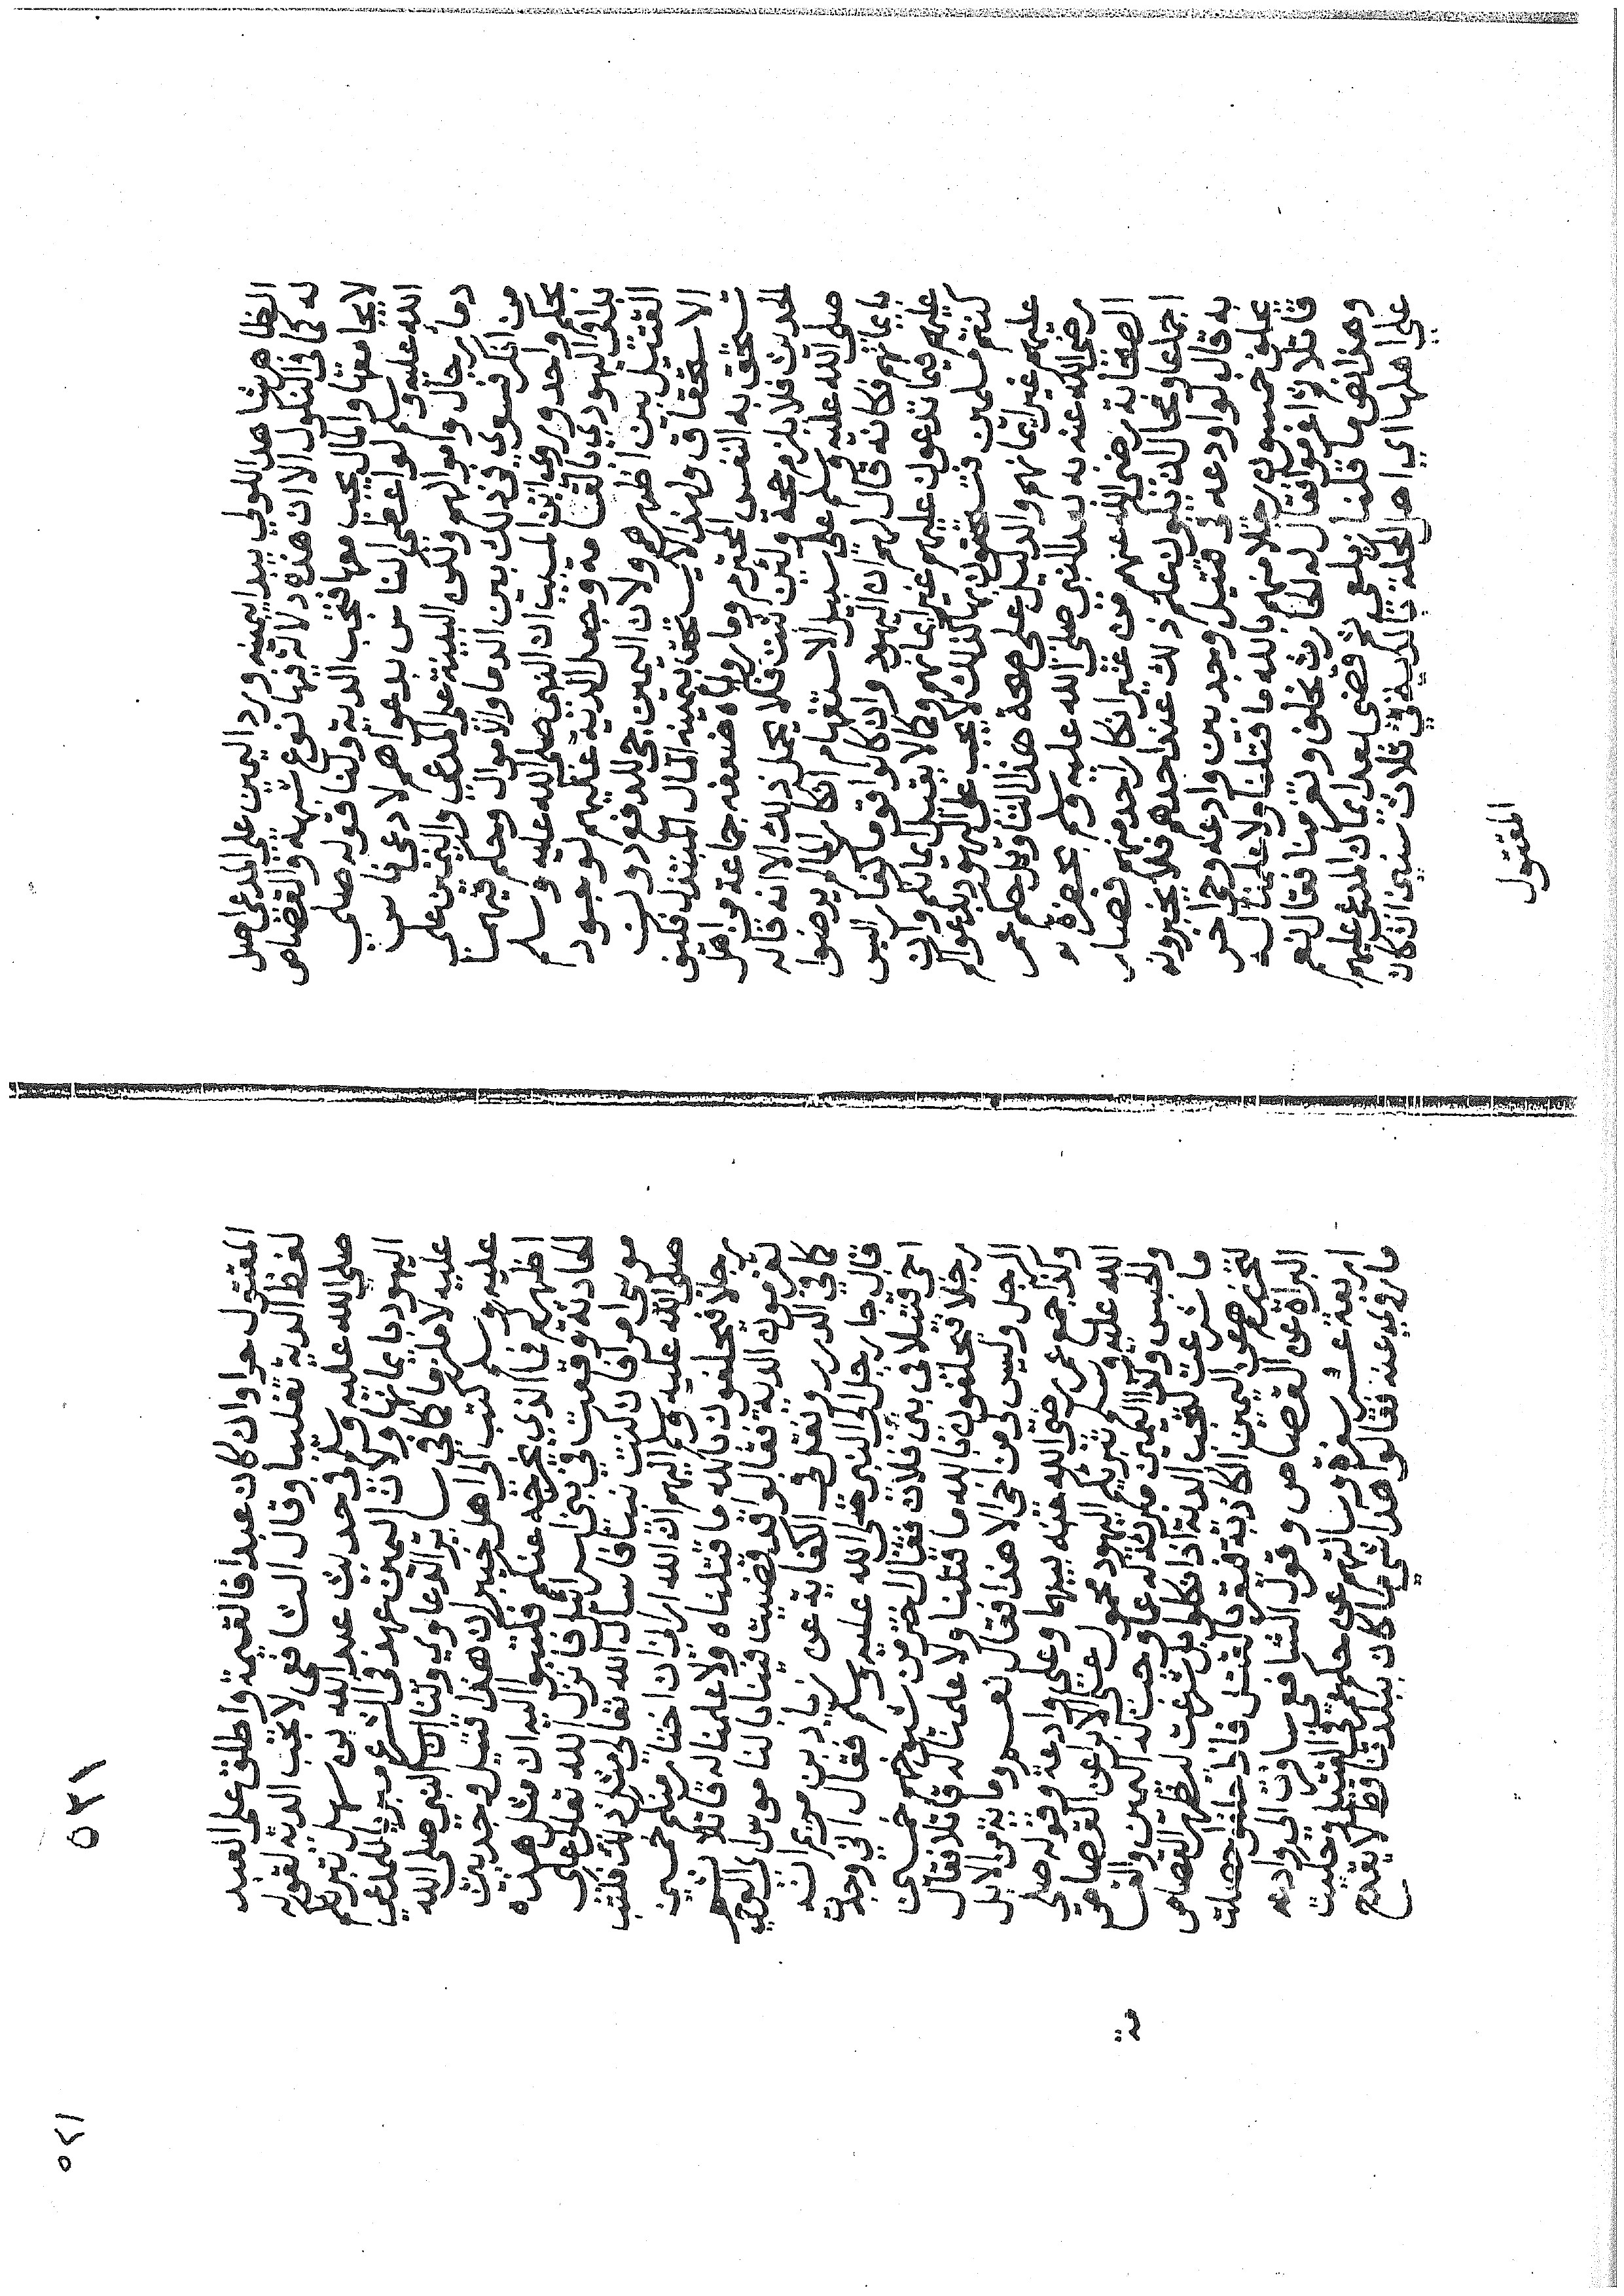 الظاهر شاهد للولي يبدا بيمينه ورد اليمين على المدعى اصل
له كما في النكول الا ان هذه دلالة فيها نوع شبهة والقصاص
لا يجامعها والمال يجب معها فتجب الدية ولنا قوله صلى
الله عليه وسلم لو اعطى الناس بدعواهم لادعى ناس
دماء رجال واموالهم ولكن البينة على المدعي واليمين على
من انكر فسوى في ذلك بين الدما والاموال وحكم فيهما
بحكم واحد وروى ابن المسيب ان النبي صلى الله عليه وسلم
بدا باليهود بالقسامة وجعل الدية عليهم لوجود
القتيل بين اظهرهم ولان اليمين حجة للدفع دون
الاستحقاق ولهذا لا يستحق بيمينه المال المبتذل فكيف
تستحق به النفس المحترم وما رواه ضعفه جماعة من اهل
الحديث فلا يلزم حجة ولئن ثبت فلا يحمل ذلك الا انه قاله
صلى الله عليه وسلم على سبيل الاستفهام انكارا لما لم يرضوا
بايمانهم فكانه قال لهم ان اليهود وان كانوا قوما كفارا ليس
عليهم فيما تدعون عليهم غير ايمانهم وكما لا يقبل ايمانكم وان
كنتم مسلمين فتستحقون بها كذلك لا يجب على اليهود بدعواكم
عليهم غير ايمانهم والدليل على صحة هذا التاويل حكم عمر
رضي الله عنه به بعد النبي صلى الله عليه وسلم بحضرة
الصحابة رضي الله عنهم من غير انكار احد منهم فصار
اجماعا ومحال ان يكون ذلك عند احدهم فلا يخبرونه
به قال لوادعه في قتيل وجد بين وادعة وحي اخر
يحلف خمسون رجلا منهم بالله ما قتلنا ولا علمنا له
قاتلا ثم اغرموا فقال له الحارث نحلف وتغرمنا فقال نعم
وهذا نص ما قلنا زيلعي ثم قضى بعد ايمان المدعى عليهم
على اهلها اي اهل المحلة بالدية في ثلاث سنين ان كان
المقتول
٥٢١
٥٢١
المقتول حرا وان كان عبدا فالقيمة واطلق على العبد
لفظ الدية تغليبا وقال الشافعي لا تجب الدية لقوله
صلى الله عليه وسلم في حديث عبد الله بن سهل تبريكم
اليهود بايمانها ولان اليمين عهد في الشرع مبريا للمدعي
عليه لا ملزما كما في ساير الدعاوي ولنا ان النبي صلى الله
عليه وسلم كتب الى اهل خيبر ان هذا قتيل وجد بين
اظهركم فما الذي يخرجه عنكم فكتبوا اليه ان مثل هذه
الحادثة وقعت في بني اسرائيل فانزل الله تعالى على
موسى امرا فان كنت نبيا فاسال الله تعالى مثل ذلك فكتب
صلى الله عليه وسلم اليهم ان الله اراني ان اختار منكم خمسين
رجلا فيحلفون بالله ما قتلناه ولا علمنا له قاتلا ثم
تغرمون الدية فقالوا قد قضيت فينا بالناموس اي الوحي
كما في الدرر ونقل في الكفاية عن زياد بن مريم انه
قال جا رجل الى النبي صلى الله عليه وسلم فقال اني وجدت
اخي قتيلا في بني فلان فقال اختر من شيوخهم خمسين
رجلا فيحلفون بالله ما قتلنا ولا علمنا له قاتلا فقال
الرجل وليس لي من اخي الا هذا فقال نعم وماية من الابل
وكذا جمع عمر رضي الله عنه بينهما وعلى وادعة وقوله صلى
الله عليه وسلم تبريكم اليهود محمول على الابرا عن القصاص
والحبس وكذا اليمين مبرئة له عما وجب له اليمين والقسامة
ما شرعت لتجب الدية اذا نكلوا بل شرعت لتظهر القصاص
لتحرزهم عن اليمين الكاذبة فيقروا بالقتل فاذا حلفوا حصلت
البراة عن القصاص وقول الشافعي ساوت الى وادعه
اربعة عشر سفرة وسالتهم عن حكم عمر في القتيل وحكيت
ما روي عنه فقالوا هذا شي ما كان ببلدنا قط لا يقدح